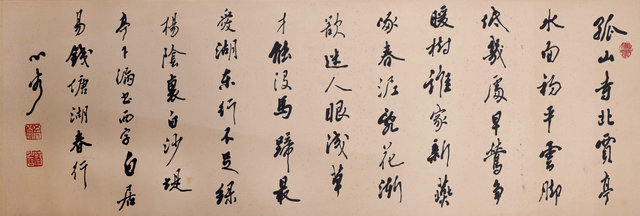 孤山寺北賈亭
水面初平雲脚
低幾處早鶯爭
暖樹誰家新燕
啄春泥亂花漸
欲迷人眼淺草
才能沒馬蹄最
愛湖東行不足綠
楊陰裏白沙堤
亭下漏書西字白居
易錢塘湖春行
心畬